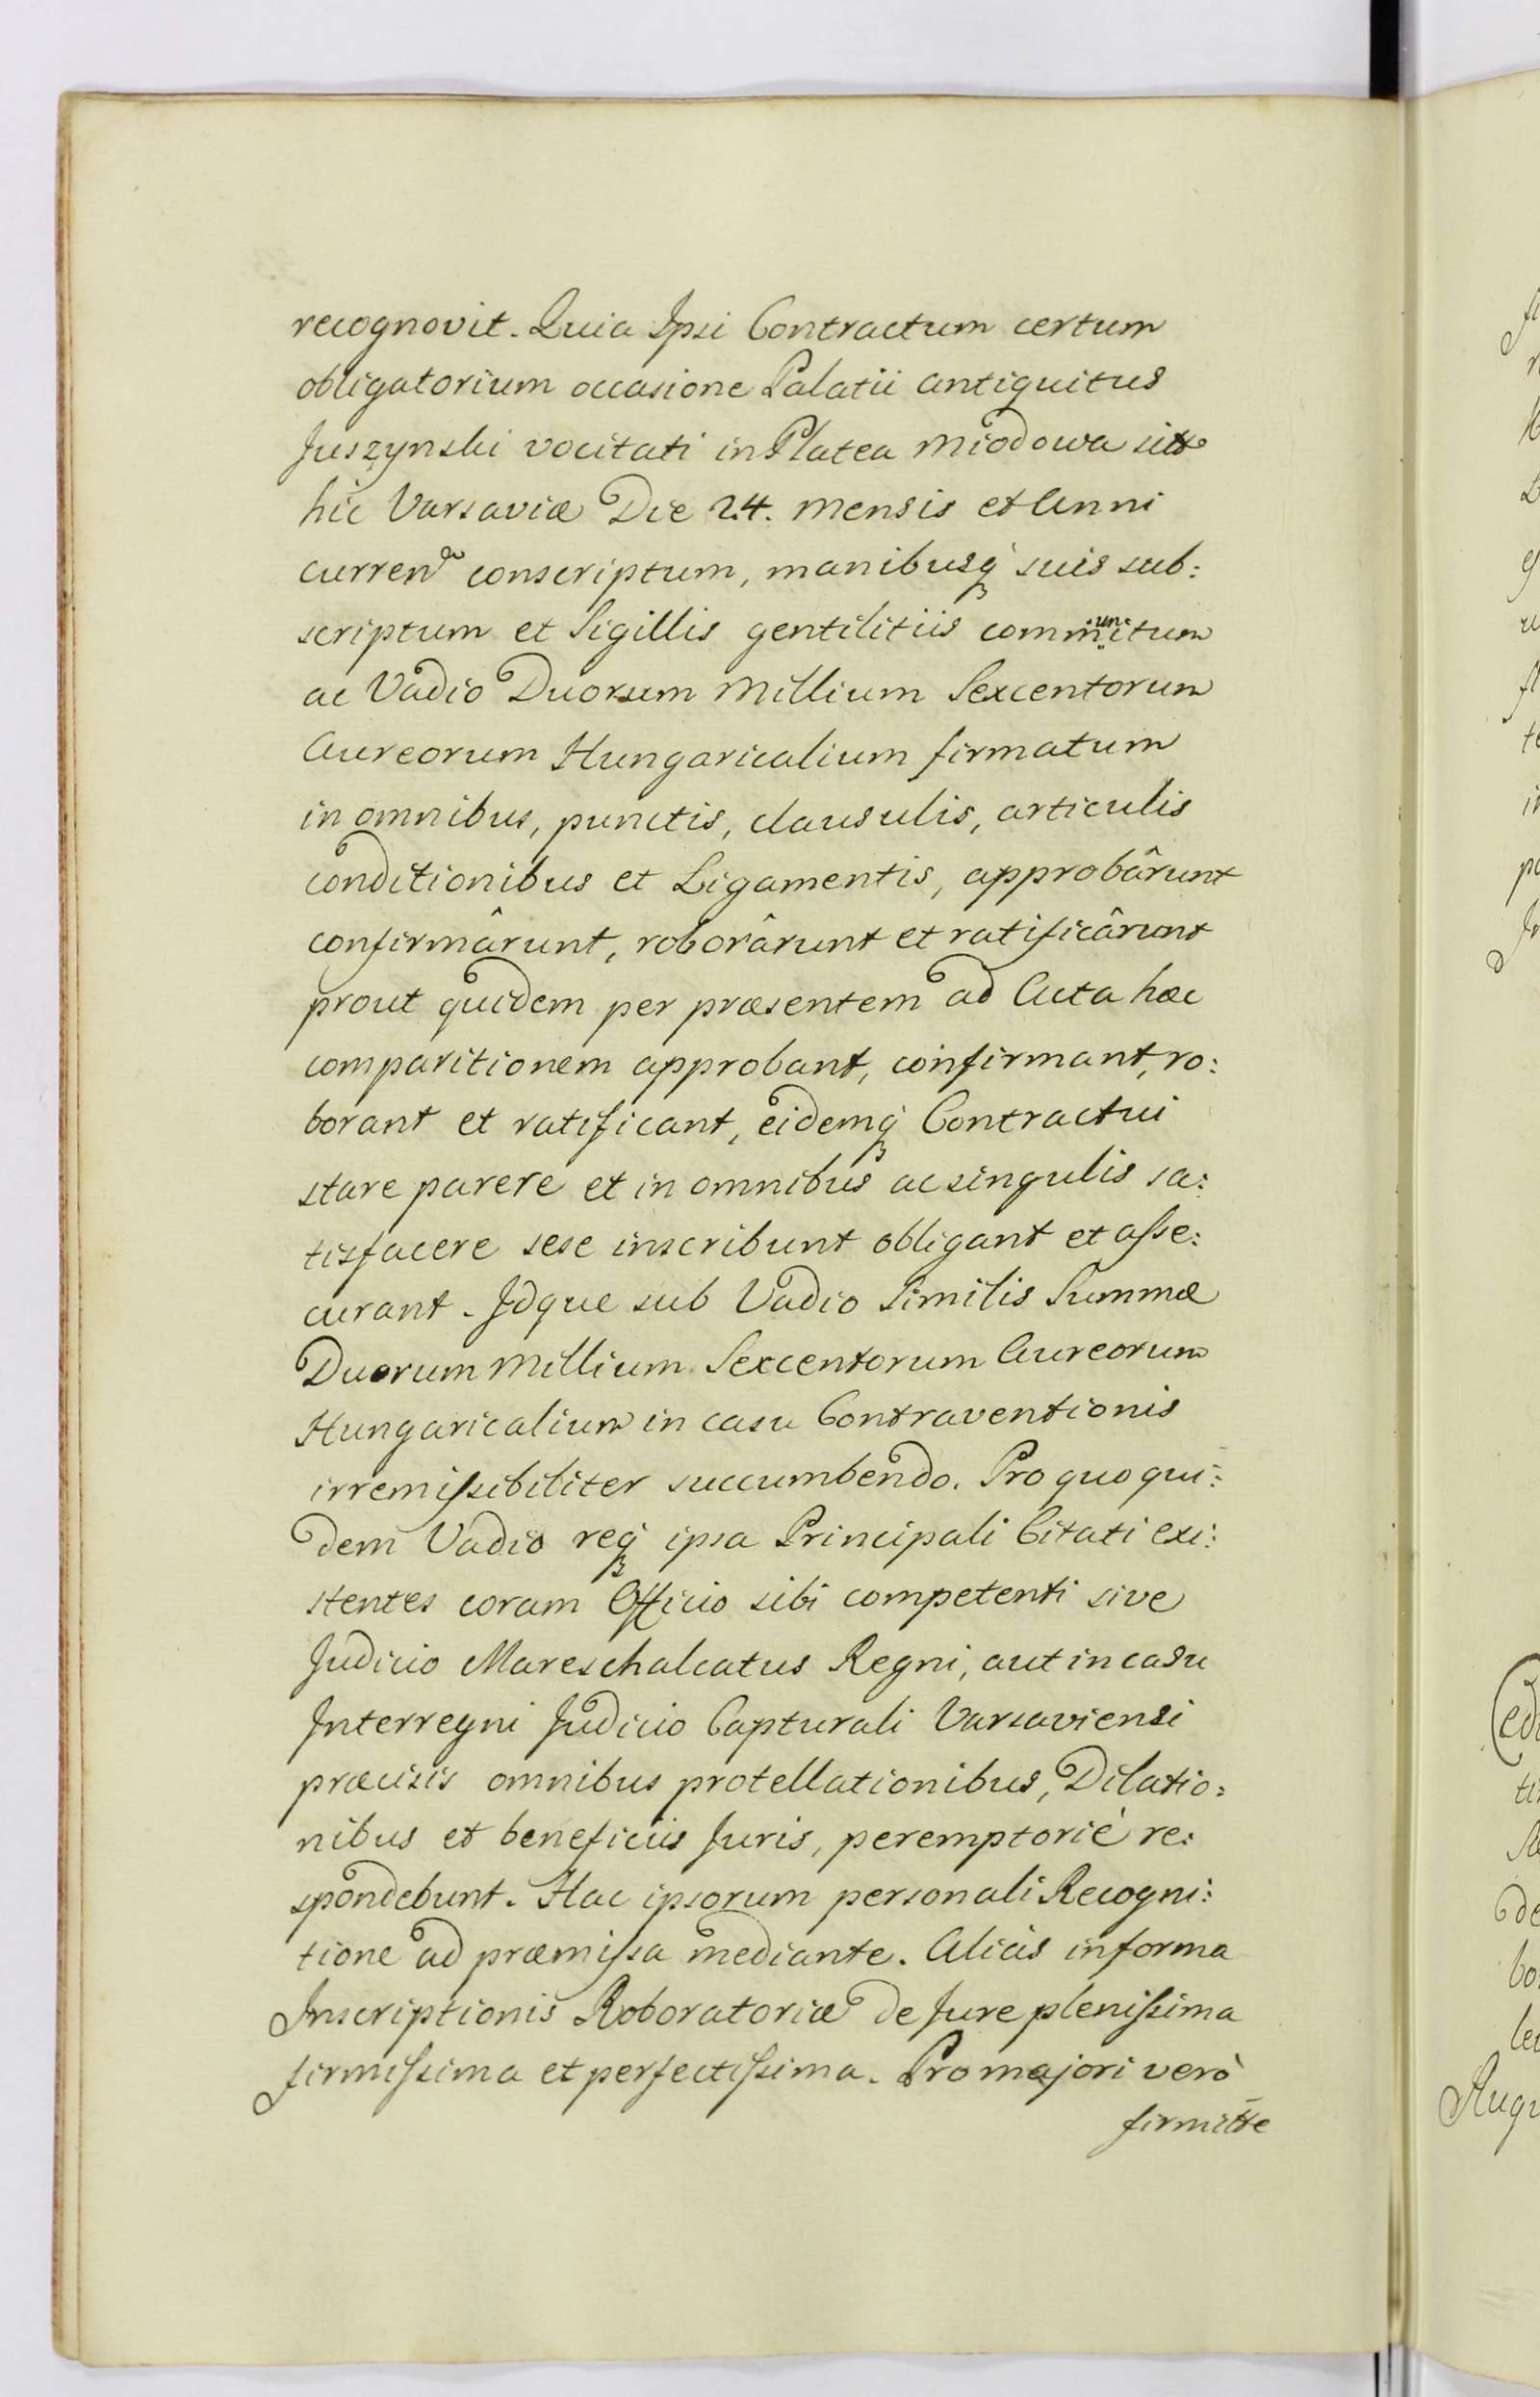 recognovit. Quia Ipsi Contractum certum
obligatorium occasione Palatii antiquitus
Juszynski vocitati in Platea Miodowa
hic Varsaviæ Die 24. Mensis et Anni
curren conscriptum, manibusq suis sub:
scriptum et Sigillis gentilitiis communitum
ac Vadio Duorum Millium Sexcentorum
Aureorum Hungaricalium firmatum
in omnibus, punctis, clausulis, articulis
conditionibus et Ligamentis, approbârunt
confirmârunt, roborârunt et ratificârunt
prout quidem per præsentem ad Acta hæc
comparitionem approbant, confirmant, ro:
borant et ratificant, eidemq Contractui
stare parere et in omnibus ac singulis sa:
tisfacere sese inscribunt obligant et aſse:
curant. Idque sub Vadio Similis Summæ
Duorum Millium Sexcentorum Aureorum
Hungaricalium in casu Contraventionis
irremiſsibiliter succumbendo. Pro quo qui:
dem Vadio req ipsa Principali Citati exi:
stentes coram Officio sibi competenti sive
Judicio Mareschalcatus Regni, aut in casu
Interregni Judicio Capturali Varsaviensi
præcisis omnibus protellationibus, Dilatio:
nibus et beneficiis Juris, peremptoriè re:
spondebunt. Hac ipsorum personali Recogni:
tione ad præmiſsa mediante. Aliàs in forma
Inscriptionis Roboratoriæ de Jure pleniſsima
firmiſsima et perfectiſsima. Pro majori verò
firmitte